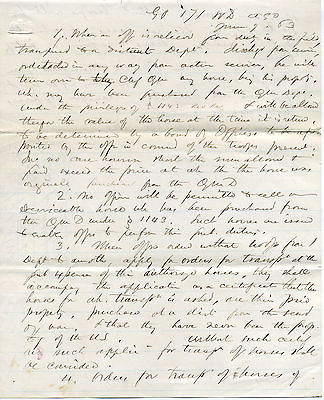 GO 171 WD AGO
June 9 - 63
1. When an off is relieved from duty in the field
transferred to a distant Dept. discharged from service
ordered in any way from active service, he will
turn over to Chf Qm any horse, being his property
wh may have been purchased from the Qm Dept.
under the privilege of § 1143 & will be allowed
therefor the value of the horse at the time it is return'd
to be determined by a board of Officers to be app
ointed by the off in comd of the troops present.
In no case however shall the sum allowed to be
paid exceed the price at wh the horse was
originally purchased from the Qm D
2. No off will be permitted to sell a
serviceable horse wh has been purchased from
the Qm D under § 1143. Such horses are issued
to enable offs to perform their pub. duties.
3. When offs ordered with troops from 1
Dept to another apply for orders for transpn at the
pub expense of their authorized horses, they shall
accompany the application with a certificate that the
horses for wh. transpn is asked, are their priv
property, purchased at a dist from the seat
of war, & that they have never been the prop-
ty of the US. without such certif
no such applicn for transpn of horses shall
be considered.
4. Orders for transpn of horses of